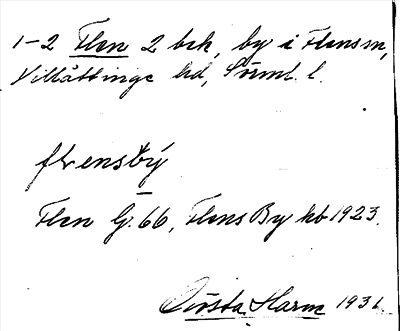 1-2 Flen 2 bck, by i Flens sn,
Villåttinge hd, Sörml. l.
flensbý
Flen G. 66, Flens By kb 1923.
Gösta Harm 1931